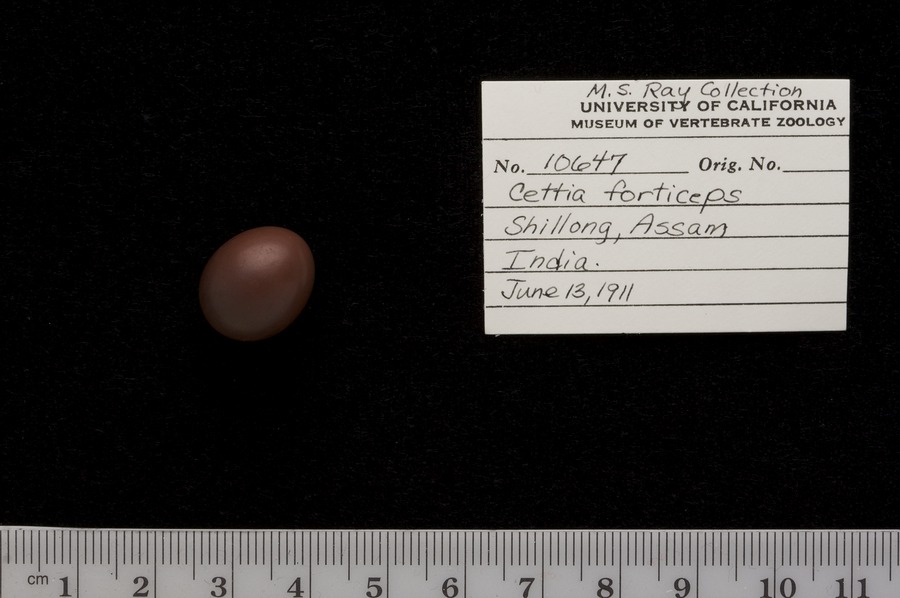 M. S. Ray Collection
UNIVERSITY OF CALIFORNIA
MUSEUM OF VERTEBRATE ZOOLOGY
No. 10647 Orig. No.
Cettia forticeps
Shillong, Assam
India.
June 13, 1911
cm 1 2 3 4 5 6 7 8 9 10 11